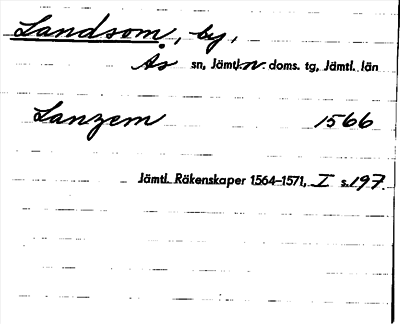 Landsom, by,
Ås sn, Jämtl. n. doms. tg, Jämtl. län
Lanzem 1566
Jämtl. Räkenskaper 1564-1571, I s. 197.